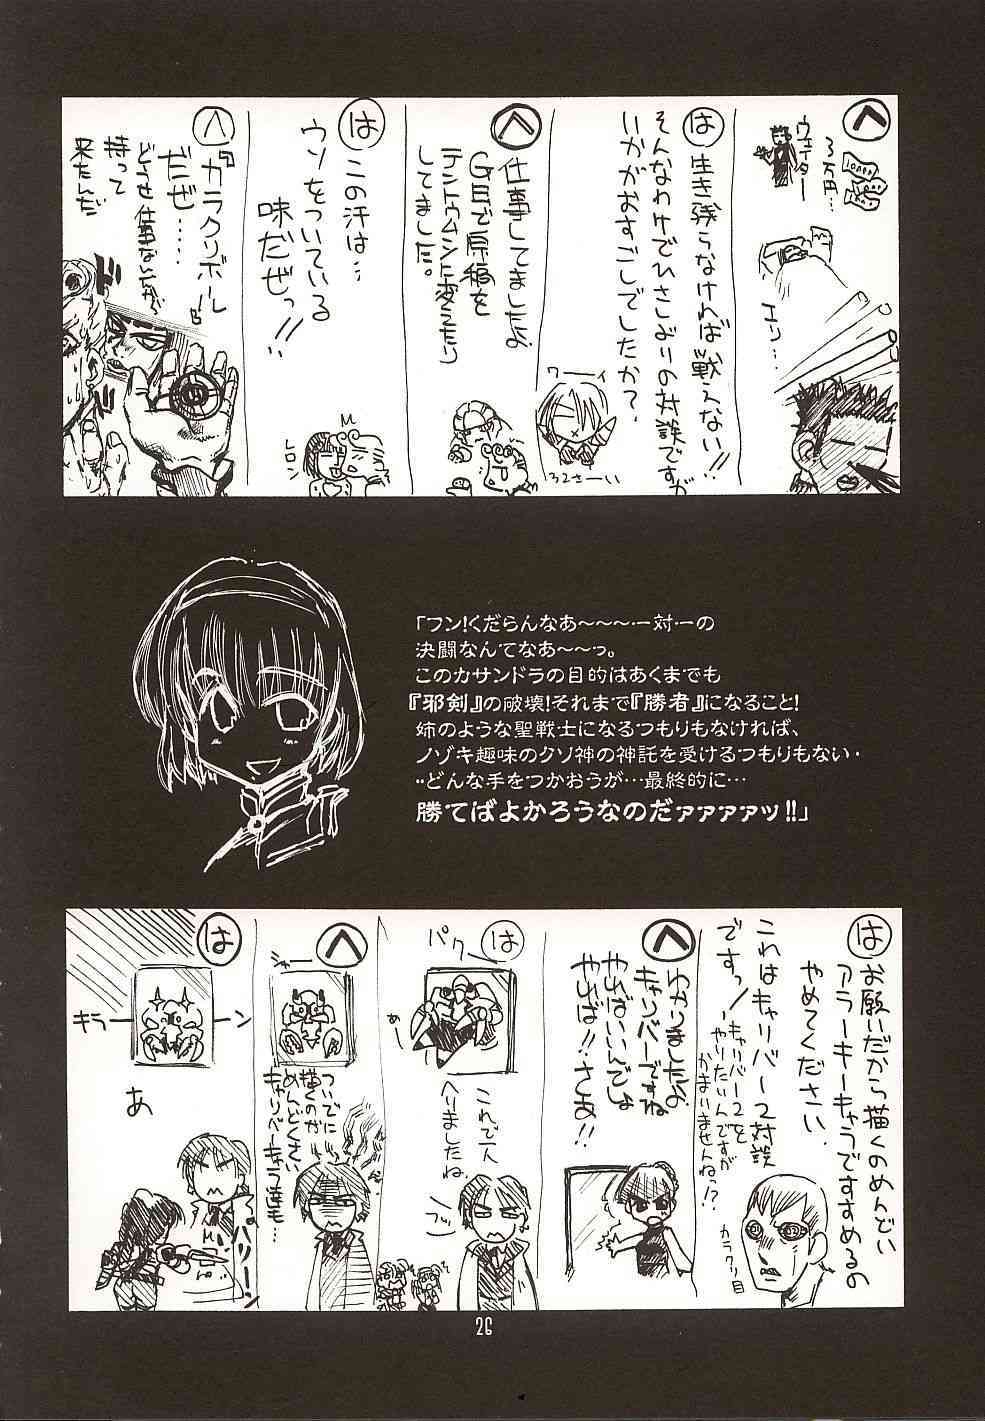 へ
3万円…
ウェイター
エリ…
は
生き残らなければ戦えない!!
そんなわけでひさよりの対談ですが
いかがおすごしでしたか?
ワーイ
へ
仕事してましたよ
GEで原稿を
テントウムシに変えたり
してました。
は
この汗は…
ウソをついている
味だぜっ!!
レロン
へ
『ガラクリボール』
だぜ……
どうせ仕事ないから
持って
来たんだ
「フン!くだらんなあ〜〜〜…一対一の
決闘なんてなあ〜〜っ。
このカサンドラの目的はあくまでも
『邪剣』の破壊!それまで『勝者』になること!
姉のような聖戦士になるつもりもなければ、
ノゾキ趣味のクソ神の神託を受けるつもりもない・
・・どんな手をつかおうが…最終的に…
勝てばよかろうなのだァァァァッ!!」
は
お願いだから描くのめんどい
アラーキーキャラですすめるの
やめてください
これはキャリバー2対談
ですっ!
キャリバー2を
やりたいんですが
かまいませんねっ!?
カラクリ目
へ
わかりましたよ
キャリバーですね
やればいいんでしょ
やれば!!さあ!!
は
パク
これで一人
へりましたね
へ
シャー
ついでに
描くのが
めんどくさい
キャリバーキャラ達も…
は
キラーーン
あ
バリーン
26